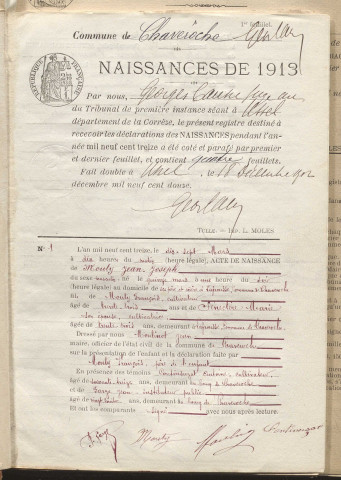 1er feuillet.
Commune de Chaveroche
RÉPUBLIQUE FRANÇAISE
NAISSANCES DE 1913
Par nous, Georges
du Tribunal de première instance séant à Ussel
département de la Corrèze, le présent registre destiné à
recevoir les déclarations des NAISSANCES pendant l'an-
née mil neuf cent treize a été coté et parafé par premier
et dernier feuillet, et contient quatre feuillets.
Fait double à Ussel, le 18 décembre 1912
décembre mil neuf cent douze.
TULLE. — IMP. L. MOLES
N° 1
L'an mil neuf cent treize, le dix-sept Mars
à dix heures du matin (heure légale), ACTE DE NAISSANCE
de Mouty Jean-Joseph
né le quinze mars à une heure du soir
(heure légale) au domicile de commune de Chaveroche
de Mouty François, cultivateur
âgé de trente trois ans et de Marie
cultivatrice
âgée de trente trois ans, demeurant à commune de Chaveroche
Dressé par nous Jean
maire, officier de l'état civil de la commune de Chaveroche
sur la présentation de l'enfant et la déclaration faite par
Mouty François, père de l'enfant
En présence des témoins cultivateur
âgé de soixante treize ans, demeurant au bourg de Chaveroche
et Jean, instituteur public
âgé de ans, demeurant au bourg de Chaveroche
Et ont les comparants signé avec nous après lecture.
Mouty